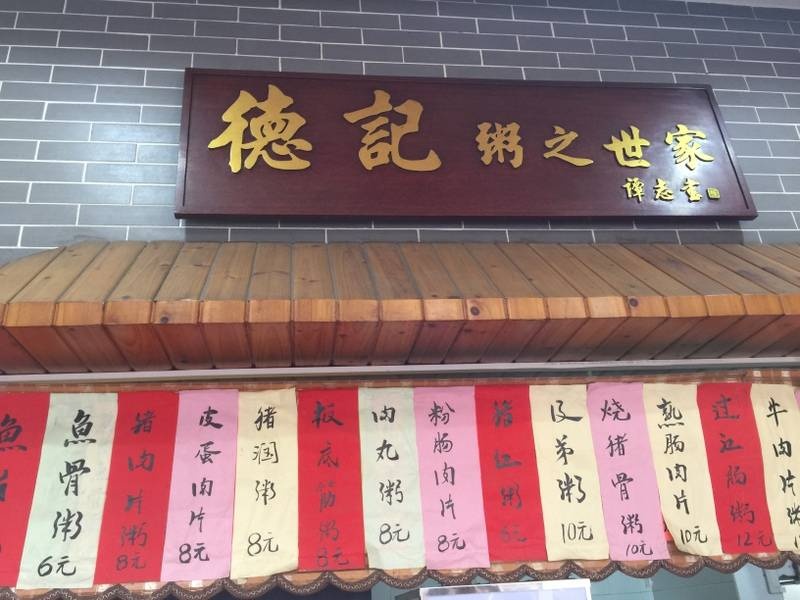 德記 粥之世家
譚志書
魚
魚骨粥 6元
猪肉片粥 8元
皮蛋肉片 8元
猪润粥 8元
板底筋粥 8元
肉丸粥 8元
粉肠肉片 8元
猪红粥 6元
及第粥 10元
烧猪骨粥 10元
熟肠肉片 10元
过江肠粥 12元
牛肉片粥